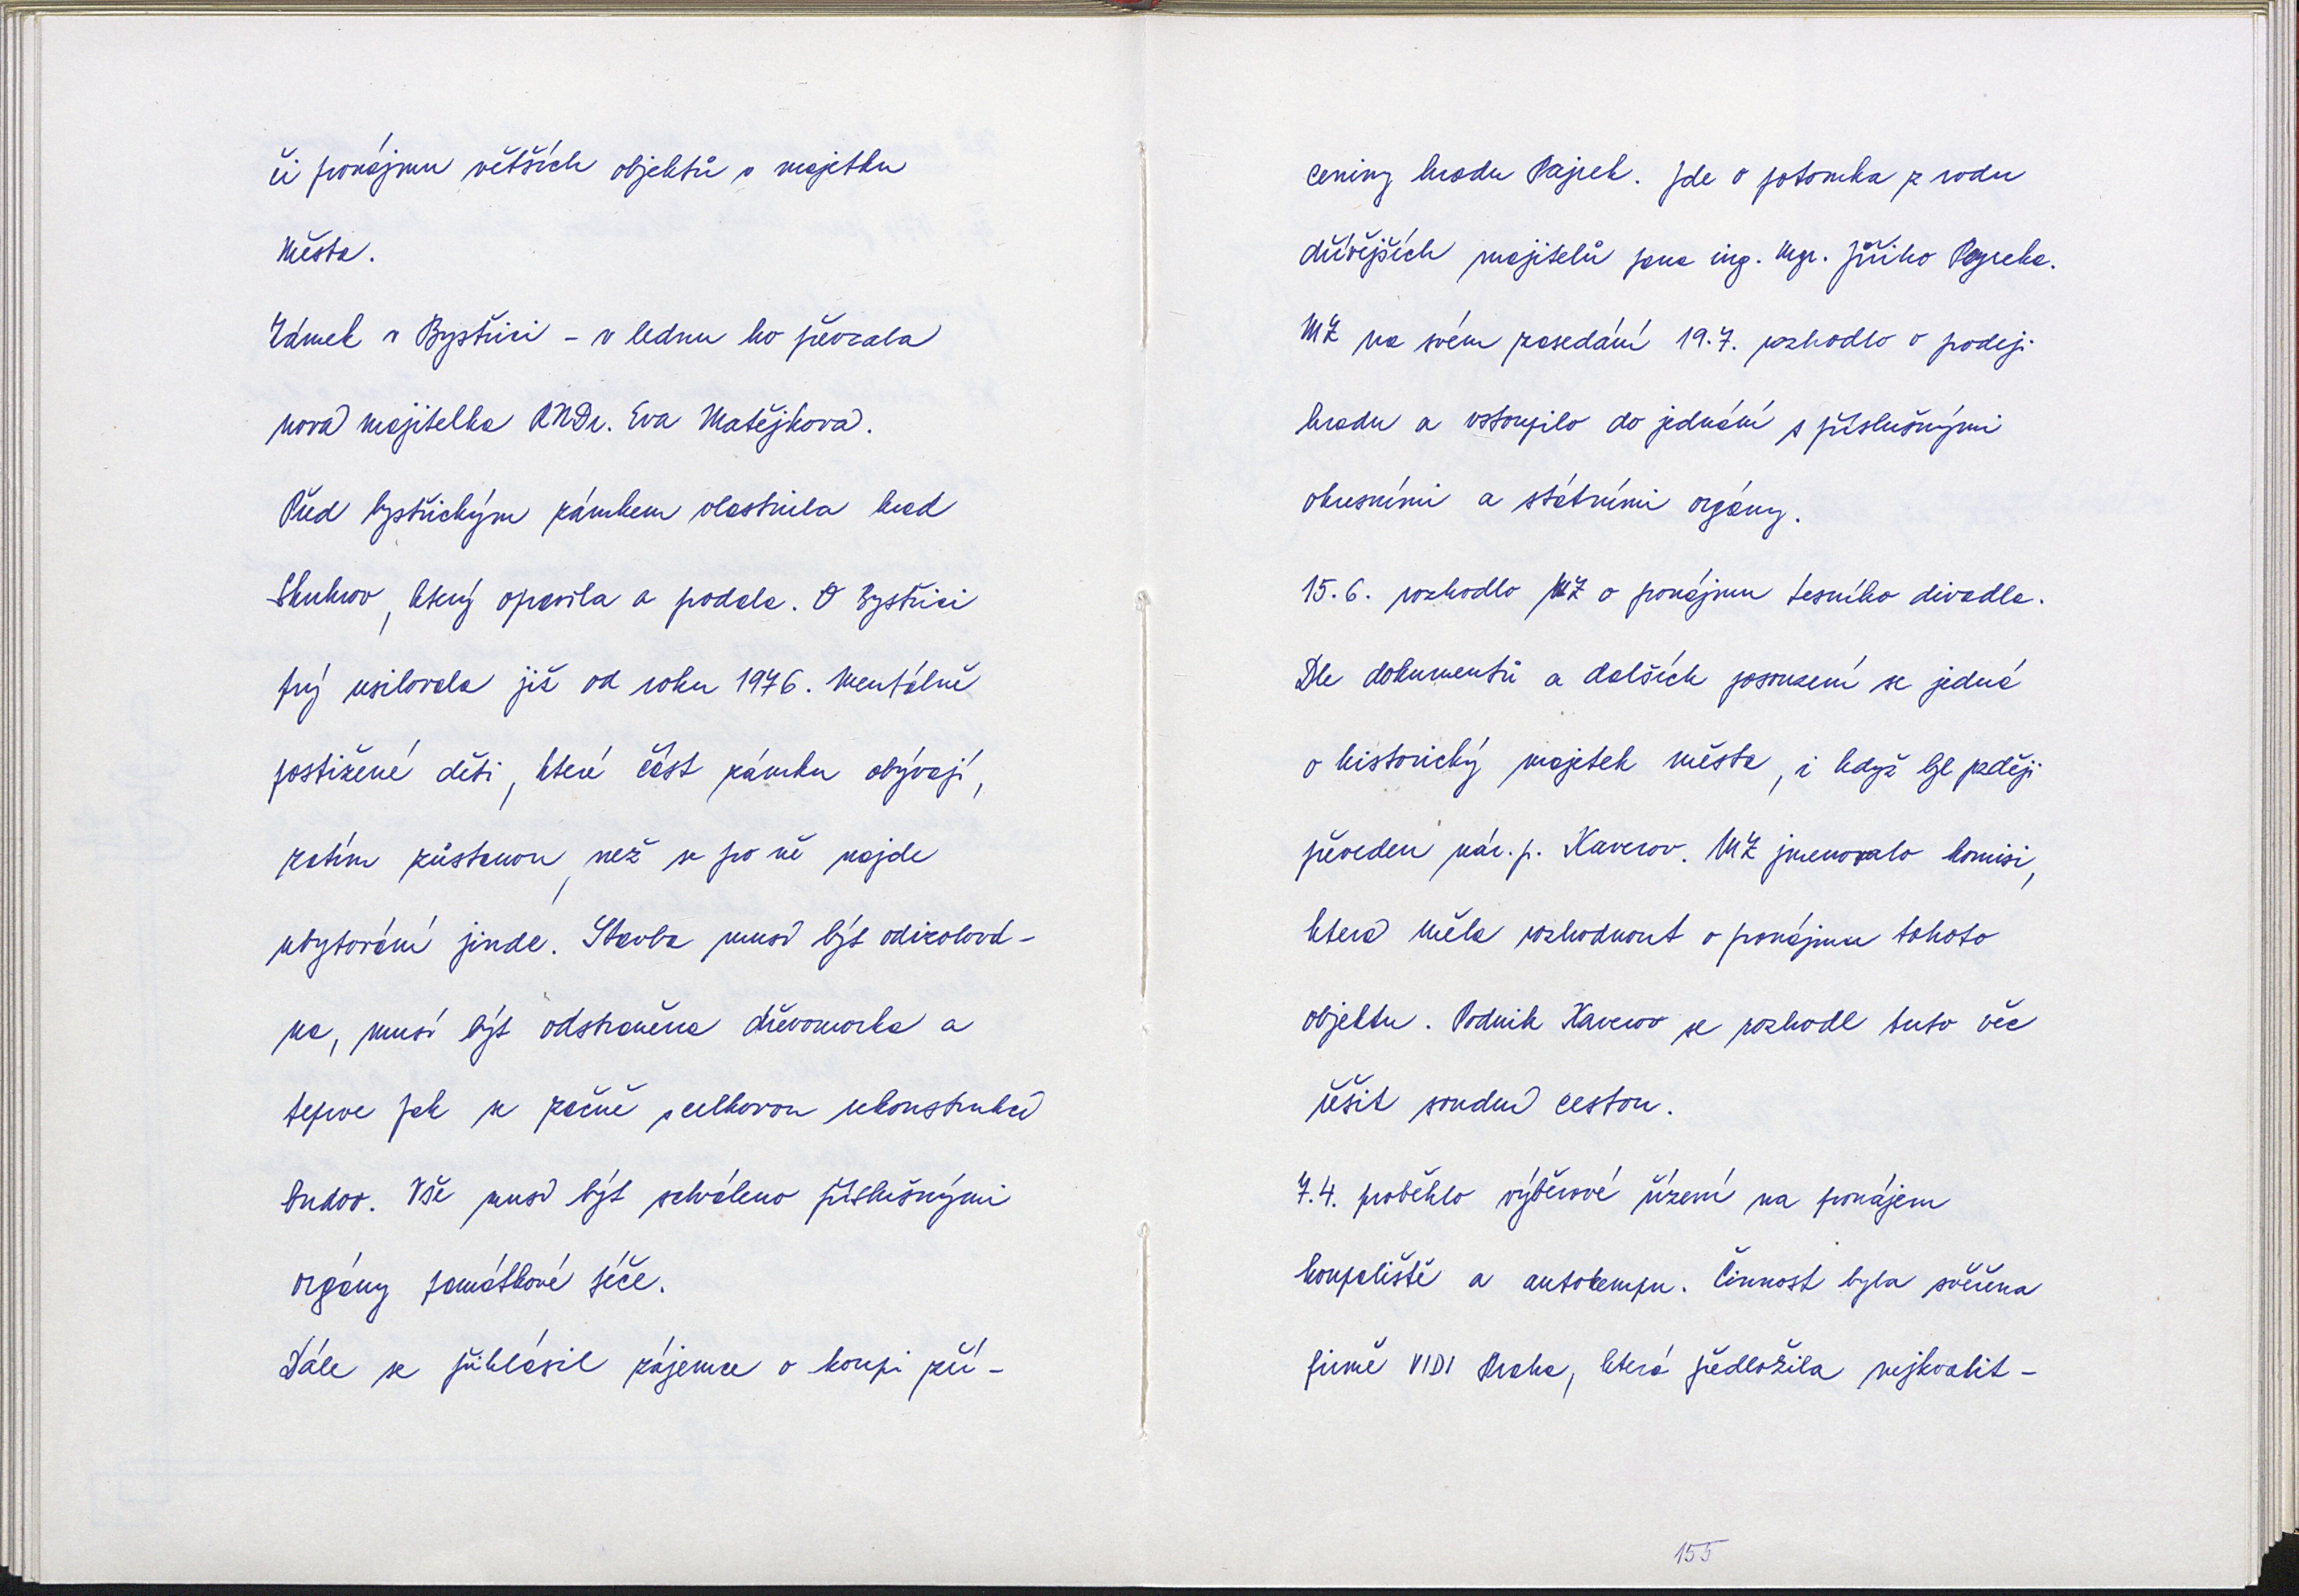 či pronájmu větších objektů v majetku
města.
Zámek v Bystřici – v lednu ho převzala
nová majitelka RNDr. Eva Matějková.
Před bystřickým zámkem vlastnila hrad
Skuhrov, který opravila a prodala. O Bystřici
prý usilovala již od roku 1976. Mentálně
postižené děti, které část zámku obývají,
zatím zůstanou, než se pro ně najde
ubytování jinde. Stavba musí být odizolová-
na, musí být odstraněna dřevomorka a
teprve pak se začne s celkovou rekonstrukcí
budov. Vše musí být schváleno příslušnými
orgány památkové péče.
Dále se přihlásil zájemce o koupi zří-
ceniny hradu Pajrek. Jde o potomka z rodu
dřívějších majitelů pana ing. Mgr. Jiřího Pajreka.
MZ na svém zasedání 19.7. rozhodlo o prodeji
hradu a vstoupilo do jednání s příslušnými
okresními a státními orgány.
15.6. rozhodlo MZ o pronájmu lesního divadla.
Dle dokumentů a dalších posouzení se jedná
o historický majetek města, i když byl později
převeden nár. p. Xaverov. MZ jmenovalo komisi,
která měla rozhodnout o pronájmu tohoto
objektu. Podnik Xaverov se rozhodl tuto věc
řešit soudní cestou.
7.4. proběhlo výběrové řízení na pronájem
koupaliště a autokempu. Činnost byla svěřena
firmě VIDI Praha, která předložila nejkvalit-
155